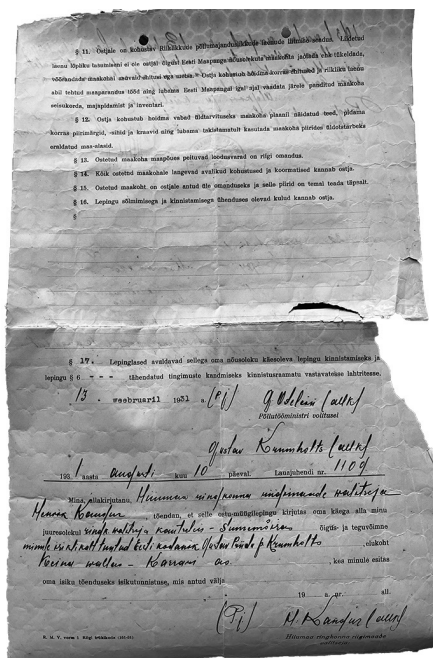 § 11. Ostjale on kohustav Riiklikkude põllumajanduslikkude laenude lihtimise seadus. Lihitud
laenu lõpliku tasumiseni ei ole ostjal õigust Eesti Maapanga nõusolekuta maakohta jaotada ehk tükeldada,
võõrandada maakohal asuvaid ehitusi ega metsa. Ostja kohustub hoidma korras ehitused ja riikliku laenu
abil tehtud maaparandus tööd ning lubama Eesti Maapangal igal ajal vaadata järele panditud maakoha
seisukorda, majapidamist ja inventari.
§ 12. Ostja kohustub hoidma vabad üldtarvituseks maakoha plaanil näidatud teed, pidama
korras piirimärgid, -sihid ja kraavid ning lubama takistamatult kasutada maakoha piirides üldotstarbeks
eraldatud maa-alasid.
§ 13. Ostetud maakoha maapõues peituvad loodusvarad on riigi omandus.
§ 14. Kõik ostetud maakohale langevad avalikud kohustused ja koormatised kannab ostja.
§ 15. Ostetud maakoht on ostjale antud üle omanduseks ja selle piirid on temal teada täpsalt.
§ 16. Lepingu sõlmimisega ja kinnistamisega ühenduses olevad kulud kannab ostja.
§
§ 17. Lepinglased avaldavad sellega oma nõusoleku käesoleva lepingu kinnistamiseks ja
lepingu § 6 - - - tähendatud tingimuste kandmiseks kinnistusraamatu vastavatesse lahtritesse.
13. veebruaril 1931 a. (P) G. Odelein (allk)
Põllutööministri volitusel
Gustav Krumholts (allk)
1931 aasta augusti kuu 10 päeval. Lauajuhendi nr. 1109
Mina, allakirjutanu, Hiiumaa ringkonna riigimaade valitseja
Kangur, tõendan, et selle ostu-müügilepingu kirjutas oma käega alla minu
juuresolekul ringk. valitseja kantselei - Suuremõisa õigus- ja teguvõime
minule isiklikult tuntud Eesti kodanik Gustav p. Krumholts, elukoht
Keina vallas - as., kes minule esitas
oma isiku tõenduseks isikutunnistuse, mis antud välja
19 a. nr. all.
(P) Kangur (allk)
Hiiumaa ringkonna riigimaade
valitseja
R. M. V. vorm 1. Riigi trükikoda